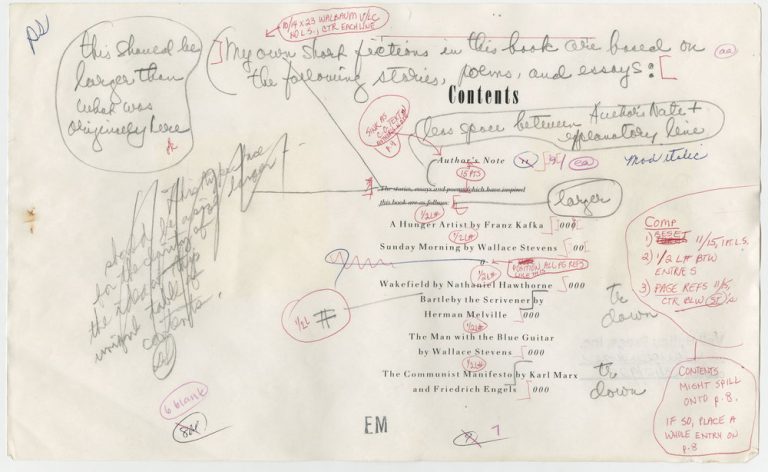 10/14 x 23 WALBAUM U/LC
NO L.S., CTR EACH LINE
this should be
larger than
what was
originally here
My own short fictions in this book are based on
the following stories, poems, and essays:
aa
Contents
less space between Author's Note +
explanatory line
Author's Note 11
ea
Mod italic
15 PTS
The stories, essays and poems which have inspired
this book are as follows:
larger
1/2 L#
A Hunger Artist by Franz Kafka 000
1/2 L#
Sunday Morning by Wallace Stevens 00
0
POSITION ALL PG REFS
LIKE THIS
1/2 L#
Wakefield by Nathaniel Hawthorne 000
Bartleby the Scrivener by
Herman Melville 000
1/2 L #
tr
down
1/2 L#
The Man with the Blue Guitar
by Wallace Stevens 000
1/2 L#
The Communist Manifesto by Karl Marx
and Friedrich Engels 000
tr
down
This typeface
should be a point
larger
for the opening of
the ideas of this
unusual table of
contents.
Comp
1) RESET 11/15, 1 PT. L.S.
2) 1/2 L# BTW
ENTRIES
3) PAGE REFS 11/15,
CTR BLW
CONTENTS
MIGHT SPILL
ONTO p. 8.
IF SO, PLACE A
WHOLE ENTRY ON
p. 8
6 blank
EM
7